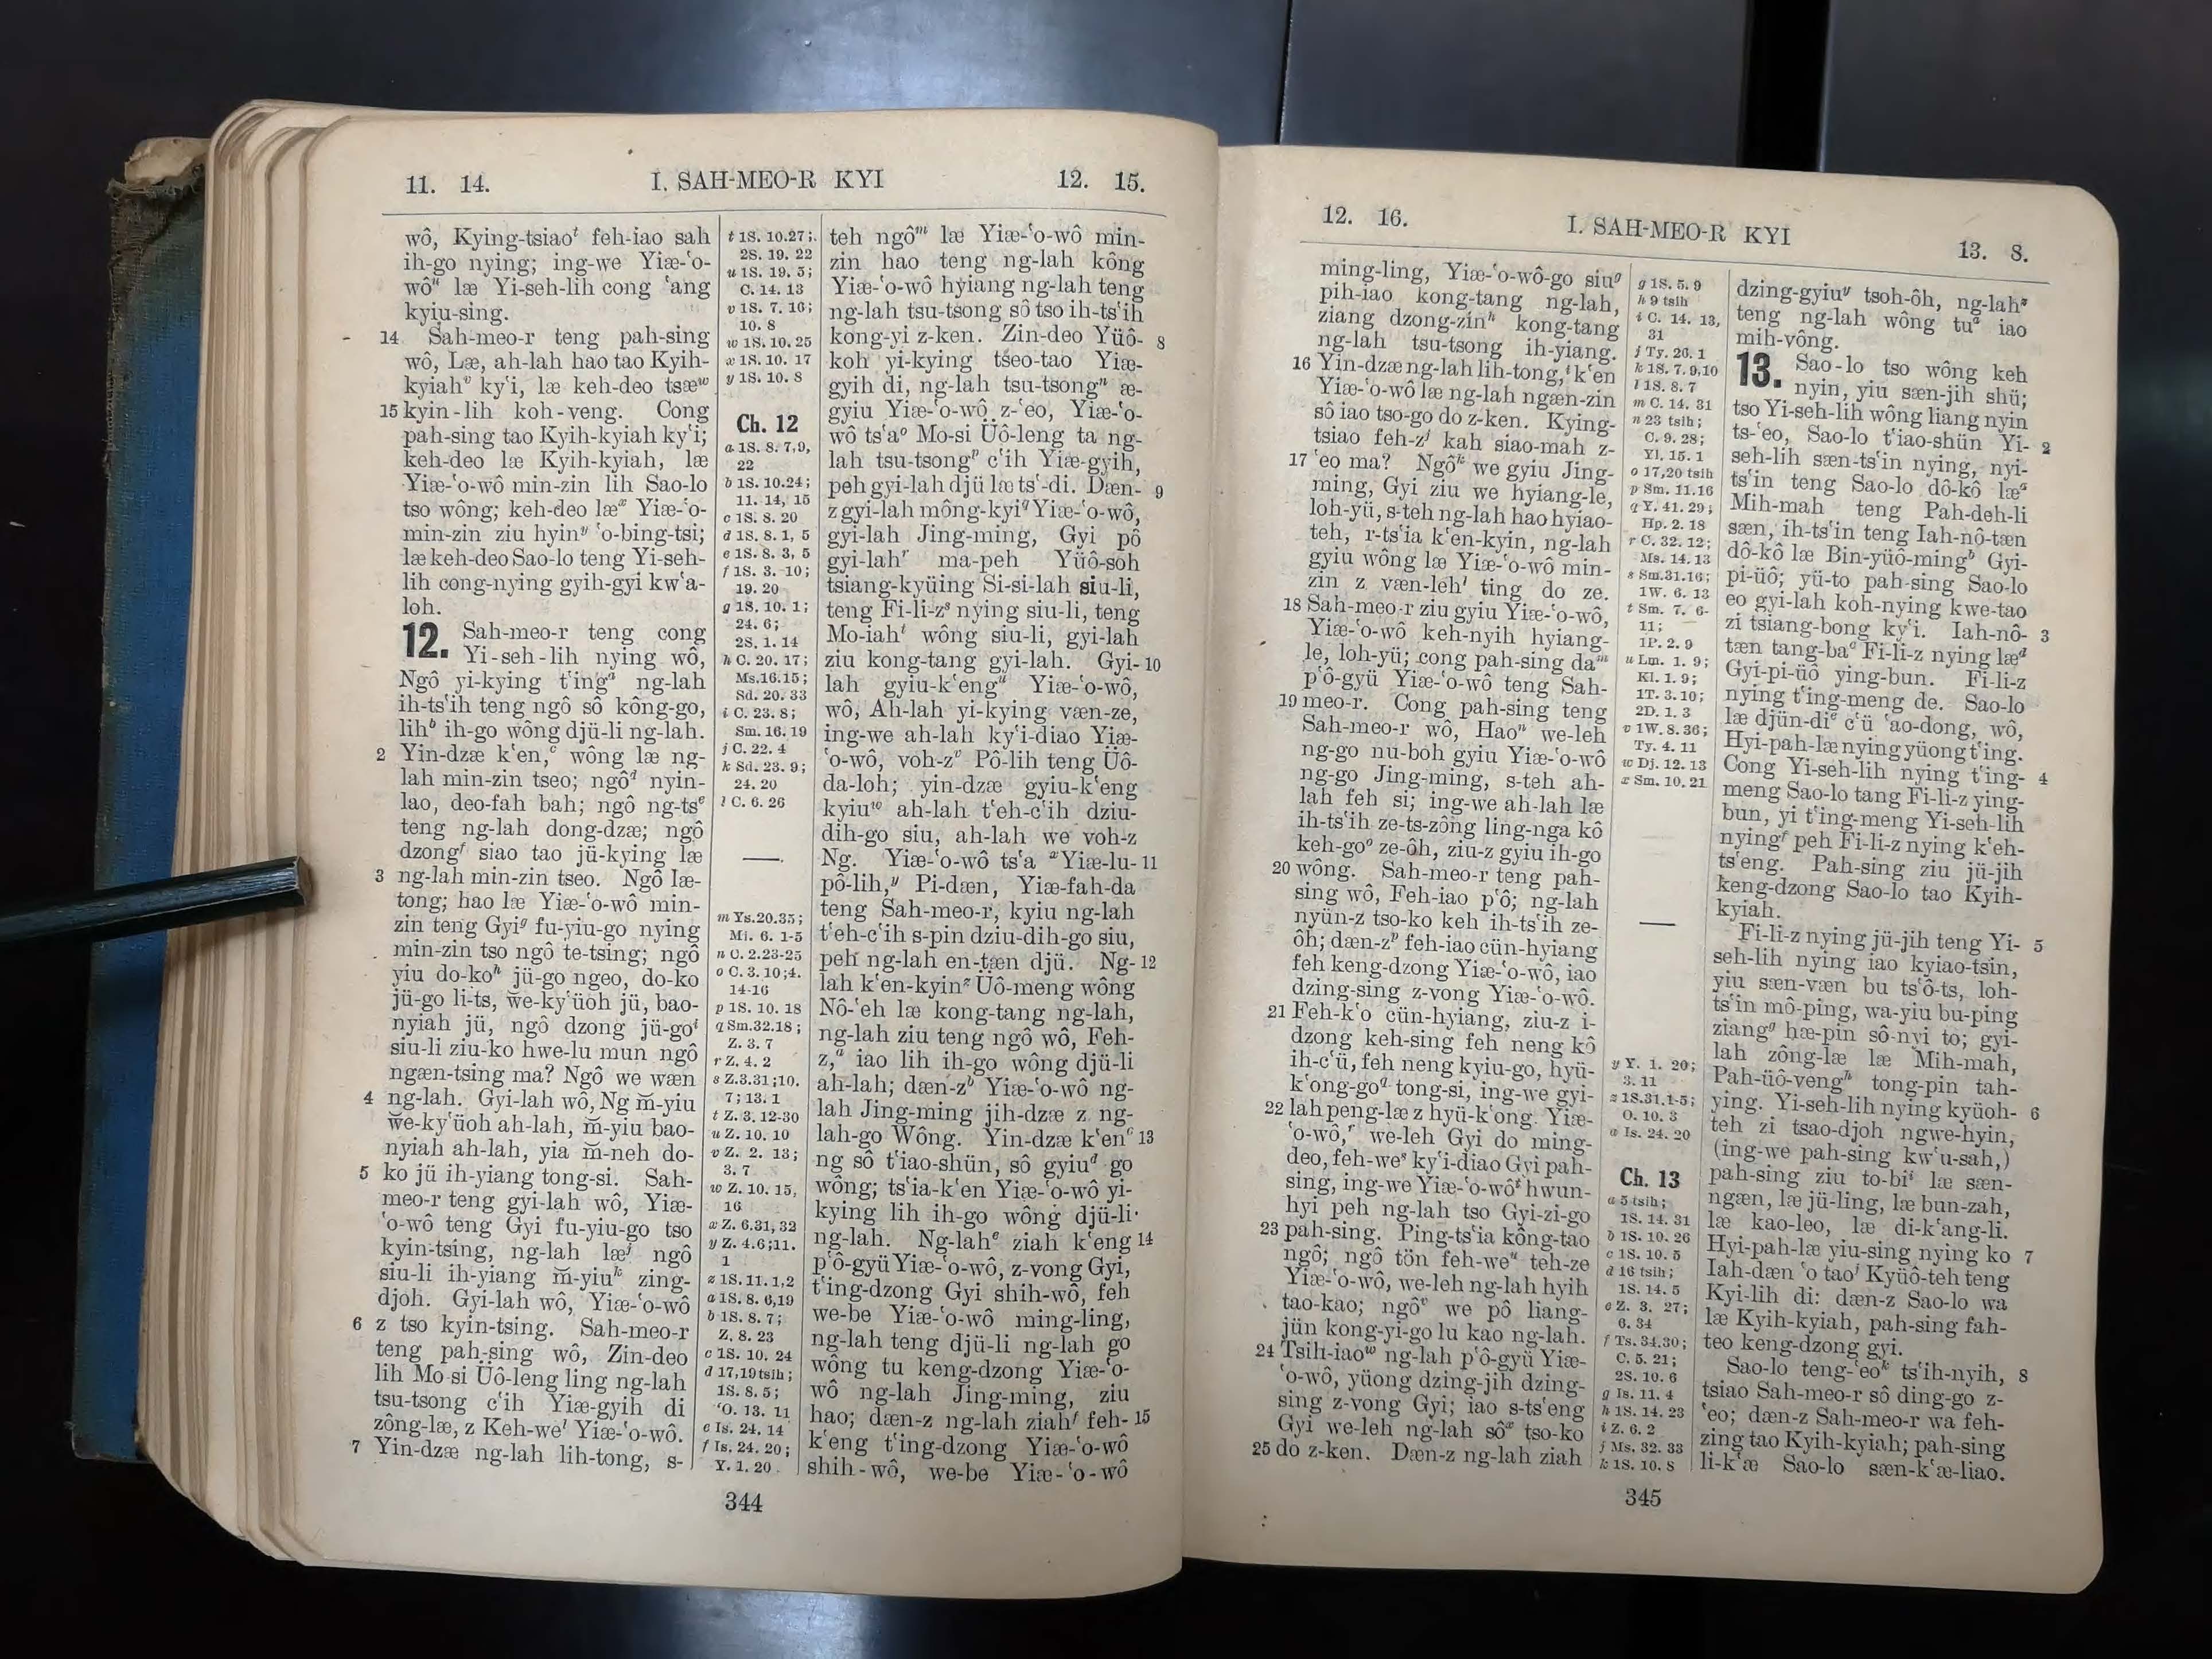 11. 14.
I. SAH-MEO-R KYI
12. 15.
wô, Kying-tsiaoᵗ feh-iao sah
ih-go nying; ing-we Yiæ-ʻo-
wôᵘ læ Yi-seh-lih cong ʻang
kyiu-sing.
14 Sah-meo-r teng pah-sing
wô, Læ, ah-lah hao tao Kyih-
kyiahᵛ kyʻi, læ keh-deo tsæʷ
15 kyin-lih koh-veng. Cong
pah-sing tao Kyih-kyiah kyʻi;
keh-deo læ Kyih-kyiah, læ
Yiæ-ʻo-wô min-zin lih Sao-lo
tso wông; keh-deo læˣ Yiæ-ʻo-
min-zin ziu hyinʸ ʻo-bing-tsi;
læ keh-deo Sao-lo teng Yi-seh-
lih cong-nying gyih-gyi kwʻa-
loh.
12. Sah-meo-r teng cong
Yi-seh-lih nying wô,
Ngô yi-kying tʻingᵃ ng-lah
ih-tsʻih teng ngô sô kông-go,
lihᵇ ih-go wông djü-li ng-lah.
2 Yin-dzæ kʻen,ᶜ wông læ ng-
lah min-zin tseo; ngôᵈ nyin-
lao, deo-fah bah; ngô ng-tsᵉ
teng ng-lah dong-dzæ; ngô
dzongᶠ siao tao jü-kying læ
3 ng-lah min-zin tseo. Ngô læ-
tong; hao læ Yiæ-ʻo-wô min-
zin teng Gyiᵍ fu-yiu-go nying
min-zin tso ngô te-tsing; ngô
yiu do-koʰ jü-go ngeo, do-ko
jü-go li-ts, we-kyʻüoh jü, bao-
nyiah jü, ngô dzong jü-goⁱ
siu-li ziu-ko hwe-lu mun ngô
ngæn-tsing ma? Ngô we wæn
4 ng-lah. Gyi-lah wô, Ng m̆-yiu
we-kyʻüoh ah-lah, m̆-yiu bao-
nyiah ah-lah, yia m̆-neh do-
5 ko jü ih-yiang tong-si. Sah-
meo-r teng gyi-lah wô, Yiæ-
ʻo-wô teng Gyi fu-yiu-go tso
kyin-tsing, ng-lah læʲ ngô
siu-li ih-yiang m̆-yiuᵏ zing-
djoh. Gyi-lah wô, Yiæ-ʻo-wô
6 z tso kyin-tsing. Sah-meo-r
teng pah-sing wô, Zin-deo
lih Mo-si Üô-leng ling ng-lah
tsu-tsong cʻih Yiæ-gyih di
zông-læ, z Keh-weˡ Yiæ-ʻo-wô.
7 Yin-dzæ ng-lah lih-tong, s-
t 1S. 10.27;
2S. 19. 22
u 1S. 19. 5;
C. 14. 13
v 1S. 7. 16;
10. 8
w 1S. 10. 25
x 1S. 10. 17
y 1S. 10. 8
Ch. 12
a 1S. 8. 7,9,
22
b 1S. 10.24;
11. 14, 15
c 1S. 8. 20
d 1S. 8. 1, 5
e 1S. 8. 3, 5
f 1S. 3. 10;
19. 20
g 1S. 10. 1;
24. 6;
2S. 1. 14
h C. 20. 17;
Ms.16.15;
Sd. 20. 33
i C. 23. 8;
Sm. 16. 19
j C. 22. 4
k Sd. 23. 9;
24. 20
l C. 6. 26
m Ys.20.35;
Mi. 6. 1-5
n C. 2.23-25
o C. 3.10;4.
14-16
p 1S. 10. 18
q Sm.32.18;
Z. 3. 7
r Z. 4. 2
s Z.3.31;10.
7; 13. 1
t Z. 3. 12-30
u Z. 10. 10
v Z. 2. 13;
3. 7
w Z. 10. 15,
16
x Z. 6.31, 32
y Z. 4.6;11.
1
z 1S. 11.1,2
a 1S. 8. 6,19
b 1S. 8. 7;
Z. 8. 23
c 1S. 10. 24
d 17,19 tsih;
1S. 8. 5;
ʻO. 13. 11
e Is. 24. 14
f Is. 24. 20;
Y. 1. 20
teh ngôᵐ læ Yiæ-ʻo-wô min-
zin hao teng ng-lah kông
Yiæ-ʻo-wô hyiang ng-lah teng
ng-lah tsu-tsong sô tso ih-tsʻih
kong-yi z-ken. Zin-deo Yüô- 8
koh yi-kying tseo-tao Yiæ-
gyih di, ng-lah tsu-tsongⁿ æ-
gyiu Yiæ-ʻo-wô z-ʻeo, Yiæ-ʻo-
wô tsʻaᵒ Mo-si Üô-leng ta ng-
lah tsu-tsongᵖ cʻih Yiæ-gyih,
peh gyi-lah djü læ tsʻ-di. Dæn- 9
z gyi-lah mông-kyi<sup>q</sup> Yiæ-ʻo-wô,
gyi-lah Jing-ming, Gyi pô
gyi-lahʳ ma-peh Yüô-soh
tsiang-kyüing Si-si-lah siu-li,
teng Fi-li-zˢ nying siu-li, teng
Mo-iahᵗ wông siu-li, gyi-lah
ziu kong-tang gyi-lah. Gyi- 10
lah gyiu-kʻengᵘ Yiæ-ʻo-wô,
wô, Ah-lah yi-kying væn-ze,
ing-we ah-lah kyʻi-diao Yiæ-
ʻo-wô, voh-zᵛ Pô-lih teng Üô-
da-loh; yin-dzæ gyiu-kʻeng
kyiuʷ ah-lah tʻeh-cʻih dziu-
dih-go siu, ah-lah we voh-z
Ng. Yiæ-ʻo-wô tsʻa ˣYiæ-lu- 11
pô-lih,ʸ Pi-dæn, Yiæ-fah-da
teng Sah-meo-r, kyiu ng-lah
tʻeh-cʻih s-pin dziu-dih-go siu,
peh ng-lah en-tæn djü. Ng- 12
lah kʻen-kyinᶻ Üô-meng wông
Nô-ʻeh læ kong-tang ng-lah,
ng-lah ziu teng ngô wô, Feh-
z,ᵃ iao lih ih-go wông djü-li
ah-lah; dæn-zᵇ Yiæ-ʻo-wô ng-
lah Jing-ming jih-dzæ z ng-
lah-go Wông. Yin-dzæ kʻenᶜ 13
ng sô tʻiao-shün, sô gyiuᵈ go
wông; tsʻia-kʻen Yiæ-ʻo-wô yi-
kying lih ih-go wông djü-li
ng-lah. Ng-lahᵉ ziah kʻeng 14
pʻô-gyü Yiæ-ʻo-wô, z-vong Gyi,
tʻing-dzong Gyi shih-wô, feh
we-be Yiæ-ʻo-wô ming-ling,
ng-lah teng djü-li ng-lah go
wông tu keng-dzong Yiæ-ʻo-
wô ng-lah Jing-ming, ziu
hao; dæn-z ng-lah ziahᶠ feh- 15
kʻeng tʻing-dzong Yiæ-ʻo-wô
shih-wô, we-be Yiæ-ʻo-wô
344
12. 16.
I. SAH-MEO-R KYI
13. 8.
ming-ling, Yiæ-ʻo-wô-go siuᵍ
pih-iao kong-tang ng-lah,
ziang dzong-zinʰ kong-tang
ng-lah tsu-tsong ih-yiang.
16 Yin-dzæ ng-lah lih-tong,ⁱ kʻen
Yiæ-ʻo-wô læ ng-lah ngæn-zin
sô iao tso-go do z-ken. Kying-
tsiao feh-zʲ kah siao-mah z-
17 ʻeo ma? Ngôᵏ we gyiu Jing-
ming, Gyi ziu we hyiang-le,
loh-yü, s-teh ng-lah hao hyiao-
teh, r-tsʻia kʻen-kyin, ng-lah
gyiu wông læ Yiæ-ʻo-wô min-
zin z væn-lehˡ ting do ze.
18 Sah-meo-r ziu gyiu Yiæ-ʻo-wô,
Yiæ-ʻo-wô keh-nyih hyiang-
le, loh-yü; cong pah-sing daᵐ
pʻô-gyü Yiæ-ʻo-wô teng Sah-
19 meo-r. Cong pah-sing teng
Sah-meo-r wô, Haoⁿ we-leh
ng-go nu-boh gyiu Yiæ-ʻo-wô
ng-go Jing-ming, s-teh ah-
lah feh si; ing-we ah-lah læ
ih-tsʻih ze-ts-zông ling-nga kô
keh-goᵒ ze-ôh, ziu-z gyiu ih-go
20 wông. Sah-meo-r teng pah-
sing wô, Feh-iao pʻô; ng-lah
nyün-z tso-ko keh ih-tsʻih ze-
ôh; dæn-zᵖ feh-iao cün-hyiang
feh keng-dzong Yiæ-ʻo-wô, iao
dzing-sing z-vong Yiæ-ʻo-wô.
21 Feh-kʻo cün-hyiang, ziu-z i-
dzong keh-sing feh neng kô
ih-cʻü, feh neng kyiu-go, hyü-
kʻong-go<sup>q</sup> tong-si, ing-we gyi-
22 lah peng-læ z hyü-kʻong. Yiæ-
ʻo-wô,ʳ we-leh Gyi do ming-
deo, feh-weˢ kyʻi-diao Gyi pah-
sing, ing-we Yiæ-ʻo-wôᵗ hwun-
hyi peh ng-lah tso Gyi-zi-go
23 pah-sing. Ping-tsʻia kông-tao
ngô; ngô tön feh-weᵘ teh-ze
Yiæ-ʻo-wô, we-leh ng-lah hyih
tao-kao; ngôᵛ we pô liang-
jün kong-yi-go lu kao ng-lah.
24 Tsih-iaoʷ ng-lah pʻô-gyü Yiæ-
ʻo-wô, yüong dzing-jih dzing-
sing z-vong Gyi; iao s-tsʻeng
Gyi we-leh ng-lah sôˣ tso-ko
25 do z-ken. Dæn-z ng-lah ziah
g 1S. 5. 9
h 9 tsih
i C. 14. 13,
31
j Ty. 26. 1
k 1S. 7. 9,10
l 1S. 8. 7
m C. 14. 31
n 23 tsih;
C. 9. 28;
Yl. 15. 1
o 17,20 tsih
p Sm. 11.16
q Y. 41. 29;
Hp. 2. 18
r C. 32. 12;
Ms. 14. 13
s Sm.31.16;
1W. 6. 13
t Sm. 7. 6-
11;
1P. 2. 9
u Lm. 1. 9;
Kl. 1. 9;
1T. 3. 10;
2D. 1. 3
v 1W. 8. 36;
Ty. 4. 11
w Dj. 12. 13
x Sm. 10. 21
y Y. 1. 20;
3. 11
z 1S.31.1-5;
O. 10. 3
a Is. 24. 20
Ch. 13
a 5 tsih;
1S. 14. 31
b 1S. 10. 26
c 1S. 10. 5
d 16 tsih;
1S. 14. 5
e Z. 3. 27;
6. 34
f Ts. 34.30;
C. 5. 21;
2S. 10. 6
g Is. 11. 4
h 1S. 14. 23
i Z. 6. 2
j Ms. 32. 33
k 1S. 10. 8
dzing-gyiuʸ tsoh-ôh, ng-lahᶻ
teng ng-lah wông tuᵃ iao
mih-vông.
13. Sao-lo tso wông keh
nyin, yiu sæn-jih shü;
tso Yi-seh-lih wông liang nyin
ts-ʻeo, Sao-lo tʻiao-shün Yi- 2
seh-lih sæn-tsʻin nying, nyi-
tsʻin teng Sao-lo dô-kô læᵃ
Mih-mah teng Pah-deh-li
sæn, ih-tsʻin teng Iah-nô-tæn
dô-kô læ Bin-yüô-mingᵇ Gyi-
pi-üô; yü-to pah-sing Sao-lo
eo gyi-lah koh-nying kwe-tao
zi tsiang-bong kyʻi. Iah-nô- 3
tæn tang-baᶜ Fi-li-z nying læᵈ
Gyi-pi-üô ying-bun. Fi-li-z
nying tʻing-meng de. Sao-lo
læ djün-diᵉ cʻü ʻao-dong, wô,
Hyi-pah-læ nying yüong tʻing.
Cong Yi-seh-lih nying tʻing- 4
meng Sao-lo tang Fi-li-z ying-
bun, yi tʻing-meng Yi-seh-lih
nyingᶠ peh Fi-li-z nying kʻeh-
tsʻeng. Pah-sing ziu jü-jih
keng-dzong Sao-lo tao Kyih-
kyiah.
Fi-li-z nying jü-jih teng Yi- 5
seh-lih nying iao kyiao-tsin,
yiu sæn-væn bu tsʻô-ts, loh-
tsʻin mô-ping, wa-yiu bu-ping
ziangᵍ hæ-pin sô-nyi to; gyi-
lah zông-læ læ Mih-mah,
Pah-üô-vengʰ tong-pin tah-
ying. Yi-seh-lih nying kyüoh- 6
teh zi tsao-djoh ngwe-hyin,
(ing-we pah-sing kwʻu-sah,)
pah-sing ziu to-biⁱ læ sæn-
ngæn, læ jü-ling, læ bun-zah,
læ kao-leo, læ di-kʻang-li.
Hyi-pah-læ yiu-sing nying ko 7
Iah-dæn ʻo taoʲ Kyüô-teh teng
Kyi-lih di: dæn-z Sao-lo wa
læ Kyih-kyiah, pah-sing fah-
teo keng-dzong gyi.
Sao-lo teng-ʻeoᵏ tsʻih-nyih, 8
tsiao Sah-meo-r sô ding-go z-
ʻeo; dæn-z Sah-meo-r wa feh-
zing tao Kyih-kyiah; pah-sing
li-kʻæ Sao-lo sæn-kʻæ-liao.
345